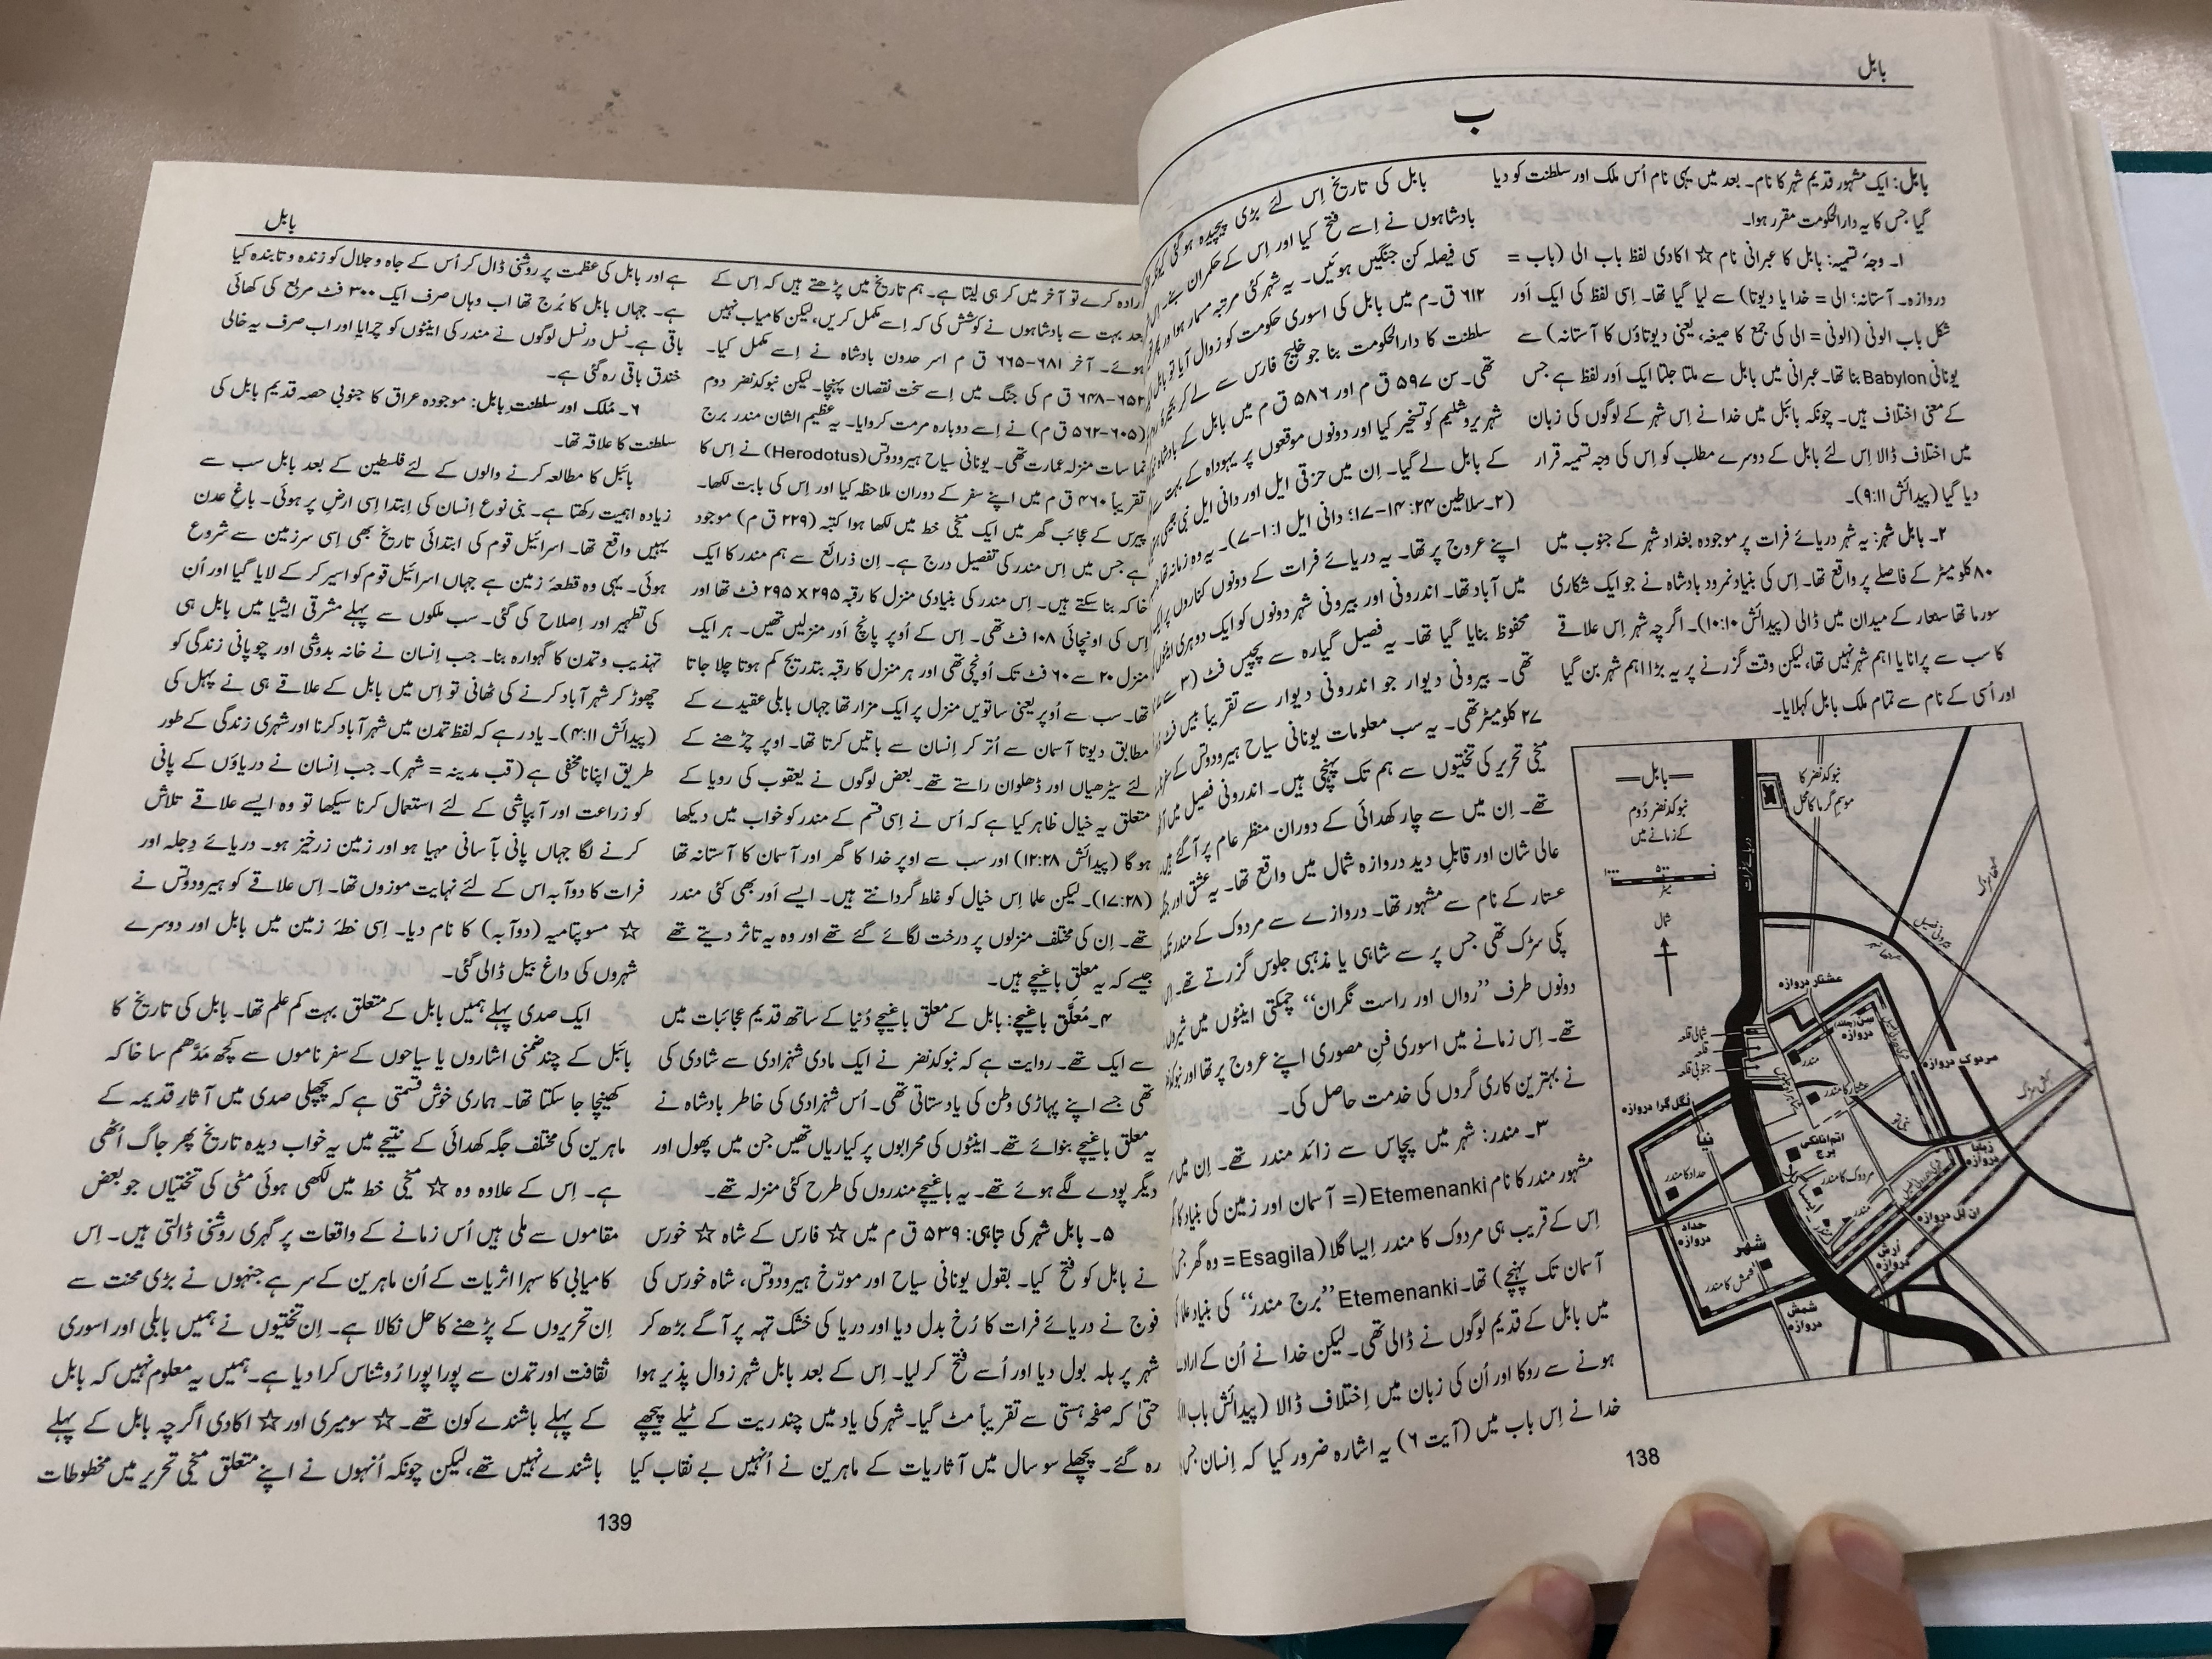 بابل
ب
بابل: ایک مشہور قدیم شہر کا نام۔ بعد میں یہی نام اُس ملک اور سلطنت کو دیا
گیا جس کا یہ دارالحکومت مقرر ہوا۔
۱۔ وجۂ تسمیہ: بابل کا عبرانی نام ☆ اکادی لفظ باب الی (باب =
دروازہ۔ آستانہ؛ الی = خدا یا دیوتا) سے لیا گیا تھا۔ اِسی لفظ کی ایک اَور
شکل باب الونی (الونی = الی کی جمع کا صیغہ، یعنی دیوتاؤں کا آستانہ) سے
یونانی Babylon بنا تھا۔ عبرانی میں بابل سے ملتا جلتا ایک اَور لفظ ہے جس
کے معنی اختلاف ہیں۔ چونکہ بائبل میں خدا نے اِس شہر کے لوگوں کی زبان
میں اختلاف ڈالا اِس لئے بابل کے دوسرے مطلب کو اِس کی وجہ تسمیہ قرار
دیا گیا (پیدائش ۹:۱۱)۔
۲۔ بابل شہر: یہ شہر دریائے فرات پر موجودہ بغداد شہر کے جنوب میں
۸۰ کلومیٹر کے فاصلے پر واقع تھا۔ اِس کی بنیاد نمرود بادشاہ نے جو ایک شکاری
سورما تھا سنعار کے میدان میں ڈالی (پیدائش ۱۰:۱۰)۔ اگرچہ شہر اِس علاقے
کا سب سے پرانا یا اہم شہر نہیں تھا، لیکن وقت گزرنے پر یہ بڑا اہم شہر بن گیا
اور اُسی کے نام سے تمام ملک بابل کہلایا۔
—بابل—
نبوکدنضر دُوم
کے زمانے میں
۱۰۰۰ ۵۰۰ ۰
میٹر
شمال
نبوکدنضر کا
موسم گرما کا محل
دریائے فرات
بیرونی فصیل
عشتار دروازہ
شمالی قلعہ
قلعہ
جنوبی قلعہ
مندر
سِن (چاند)
دروازہ
مردوک دروازہ
عشتار کا مندر
نیا
حداد کا مندر
حداد
دروازہ
شہر
شمش کا مندر
شمش
دروازہ
اتم انانکی
برج
مردوک کا مندر
مندر
زبابا
دروازہ
اُرش
دروازہ
بابل کی تاریخ اِس لئے بڑی پیچیدہ ہو گئی
بادشاہوں نے اِسے فتح کیا اور اِس کے حکمران بنے۔
سی فیصلہ کن جنگیں ہوئیں۔ یہ شہر کئی مرتبہ مسمار ہوا
۶۱۲ ق۔م میں بابل کی اسوری حکومت کو زوال آیا تو بابل
سلطنت کا دارالحکومت بنا جو خلیج فارس سے لے کر
تھی۔ سن ۵۹۷ ق م اور ۵۸۶ ق م میں بابل کے بادشاہ
شہر یروشلیم کو تسخیر کیا اور دونوں موقعوں پر یہوداہ کے بہت
کے بابل لے گیا۔ اِن میں حزقی ایل اور دانی ایل نبی بھی
(۲۔سلاطین ۲۴: ۱۴-۱۷؛ دانی ایل ۱: ۱-۷)۔ یہ وہ زمانہ تھا
اپنے عروج پر تھا۔ یہ دریائے فرات کے دونوں کناروں پر
میں آباد تھا۔ اندرونی اور بیرونی شہر دونوں کو ایک دوہری
محفوظ بنایا گیا تھا۔ یہ فصیل گیارہ سے پچیس فٹ (۳
تھی۔ بیرونی دیوار جو اندرونی دیوار سے تقریباً بیس فٹ
۲۷ کلومیٹر تھی۔ یہ سب معلومات یونانی سیاح ہیرودوتس کے
میخی تحریر کی تختیوں سے ہم تک پہنچی ہیں۔ اندرونی فصیل میں
تھے۔ اِن میں سے چار کھدائی کے دوران منظر عام پر آ گئے
عالی شان اور قابلِ دید دروازہ شمال میں واقع تھا۔ یہ عشق اور
عستار کے نام سے مشہور تھا۔ دروازے سے مردوک کے مندر
پکی سڑک تھی جس پر سے شاہی یا مذہبی جلوس گزرتے تھے۔
دونوں طرف ”رواں اور راست نگران“ چمکتی اینٹوں میں
تھے۔ اِس زمانے میں اسوری فنِ مصوری اپنے عروج پر تھا اور
نے بہترین کاری گروں کی خدمت حاصل کی۔
۳۔ مندر: شہر میں پچاس سے زائد مندر تھے۔ اِن میں
مشہور مندر کا نام Etemenanki (= آسمان اور زمین کی بنیاد
اِس کے قریب ہی مردوک کا مندر اِیسا گلا (Esagila = وہ گھر
آسمان تک پہنچے) تھا۔ Etemenanki ”برج مندر“ کی بنیاد
میں بابل کے قدیم لوگوں نے ڈالی تھی۔ لیکن خدا نے اُن کے
ہونے سے روکا اور اُن کی زبان میں اِختلاف ڈالا (پیدائش باب
خدا نے اِس باب میں (آیت ۶) یہ اشارہ ضرور کیا کہ اِنسان
138
بابل
ارادہ کرے تو آخر میں کر ہی لیتا ہے۔ ہم تاریخ میں پڑھتے ہیں کہ اِس کے
بعد بہت سے بادشاہوں نے کوشش کی کہ اِسے مکمل کریں، لیکن کامیاب نہیں
ہوئے۔ آخر ۶۸۱-۶۶۵ ق م اسر حدون بادشاہ نے اِسے مکمل کیا۔
۶۵۲-۶۴۸ ق م کی جنگ میں اِسے سخت نقصان پہنچا۔ لیکن نبوکدنضر دوم
(۶۰۵-۵۶۲ ق م) نے اِسے دوبارہ مرمت کروایا۔ یہ عظیم الشان مندر برج
نما سات منزلہ عمارت تھی۔ یونانی سیاح ہیرودوتس (Herodotus) نے اِس کا
تقریباً ۴۶۰ ق م میں اپنے سفر کے دوران ملاحظہ کیا اور اِس کی بابت لکھا۔
پیرس کے عجائب گھر میں ایک میخی خط میں لکھا ہوا کتبہ (۲۲۹ ق م) موجود
ہے جس میں اِس مندر کی تفصیل درج ہے۔ اِن ذرائع سے ہم مندر کا ایک
خاکہ بنا سکتے ہیں۔ اِس مندر کی بنیادی منزل کا رقبہ ۲۹۵ x ۲۹۵ فٹ تھا اور
اِس کی اونچائی ۱۰۸ فٹ تھی۔ اِس کے اُوپر پانچ اَور منزلیں تھیں۔ ہر ایک
منزل ۲۰ سے ۶۰ فٹ تک اُونچی تھی اور ہر منزل کا رقبہ بتدریج کم ہوتا چلا جاتا
تھا۔ سب سے اُوپر یعنی ساتویں منزل پر ایک مزار تھا جہاں بابلی عقیدے کے
مطابق دیوتا آسمان سے اُتر کر اِنسان سے باتیں کرتا تھا۔ اوپر چڑھنے کے
لئے سیڑھیاں اور ڈھلوان راستے تھے۔ بعض لوگوں نے یعقوب کی رویا کے
متعلق یہ خیال ظاہر کیا ہے کہ اُس نے اِسی قسم کے مندر کو خواب میں دیکھا
ہو گا (پیدائش ۱۲:۲۸) اور سب سے اوپر خدا کا گھر اور آسمان کا آستانہ تھا
(۱۷:۲۸)۔ لیکن علما اِس خیال کو غلط گردانتے ہیں۔ ایسے اَور بھی کئی مندر
تھے۔ اِن کی مختلف منزلوں پر درخت لگائے گئے تھے اور وہ یہ تاثر دیتے تھے
جیسے کہ یہ معلق باغیچے ہیں۔
۴۔ مُعلّق باغیچے: بابل کے معلق باغیچے دُنیا کے ساتھ قدیم عجائبات میں
سے ایک تھے۔ روایت ہے کہ نبوکدنضر نے ایک مادی شہزادی سے شادی کی
تھی جسے اپنے پہاڑی وطن کی یاد ستاتی تھی۔ اُس شہزادی کی خاطر بادشاہ نے
یہ معلق باغیچے بنوائے تھے۔ اینٹوں کی محرابوں پر کیاریاں تھیں جن میں پھول اور
دیگر پودے لگے ہوئے تھے۔ یہ باغیچے مندروں کی طرح کئی منزلہ تھے۔
۵۔ بابل شہر کی تباہی: ۵۳۹ ق م میں ☆ فارس کے شاہ ☆ خورس
نے بابل کو فتح کیا۔ بقول یونانی سیاح اور مورّخ ہیرودوتس، شاہ خورس کی
فوج نے دریائے فرات کا رُخ بدل دیا اور دریا کی خشک تہہ پر آگے بڑھ کر
شہر پر ہلہ بول دیا اور اُسے فتح کر لیا۔ اِس کے بعد بابل شہر زوال پذیر ہوا
حتیٰ کہ صفحۂ ہستی سے تقریباً مٹ گیا۔ شہر کی یاد میں چند ریت کے ٹیلے پیچھے
رہ گئے۔ پچھلے سو سال میں آثاریات کے ماہرین نے اُنہیں بے نقاب کیا
ہے اور بابل کی عظمت پر روشنی ڈال کر اُس کے جاہ و جلال کو زندہ و تابندہ کیا
ہے۔ جہاں بابل کا بُرج تھا اب وہاں صرف ایک ۳۰۰ فٹ مربع کی کھائی
باقی ہے۔ نسل در نسل لوگوں نے مندر کی اینٹوں کو چرایا اور اب صرف یہ خالی
خندق باقی رہ گئی ہے۔
۶۔ مُلک اور سلطنتِ بابل: موجودہ عراق کا جنوبی حصہ قدیم بابل کی
سلطنت کا علاقہ تھا۔
بائبل کا مطالعہ کرنے والوں کے لئے فلسطین کے بعد بابل سب سے
زیادہ اہمیت رکھتا ہے۔ بنی نوع اِنسان کی اِبتدا اِسی ارضِ پر ہوئی۔ باغِ عدن
یہیں واقع تھا۔ اسرائیل قوم کی ابتدائی تاریخ بھی اِسی سرزمین سے شروع
ہوئی۔ یہی وہ قطعۂ زمین ہے جہاں اسرائیل قوم کو اسیر کر کے لایا گیا اور اُن
کی تطہیر اور اِصلاح کی گئی۔ سب ملکوں سے پہلے مشرقی ایشیا میں بابل ہی
تہذیب و تمدن کا گہوارہ بنا۔ جب اِنسان نے خانہ بدوشی اور چوپانی زندگی کو
چھوڑ کر شہر آباد کرنے کی ٹھانی تو اِس میں بابل کے علاقے ہی نے پہل کی
(پیدائش ۴:۱۱)۔ یاد رہے کہ لفظ تمدن میں شہر آباد کرنا اور شہری زندگی کے طور
طریق اپنانا مخفی ہے (قب مدینہ = شہر)۔ جب اِنسان نے دریاؤں کے پانی
کو زراعت اور آبپاشی کے لئے استعمال کرنا سیکھا تو وہ ایسے علاقے تلاش
کرنے لگا جہاں پانی بآسانی مہیا ہو اور زمین زرخیز ہو۔ دریائے دِجلہ اور
فرات کا دوآبہ اس کے لئے نہایت موزوں تھا۔ اِس علاقے کو ہیرودوتس نے
☆ مسوپتامیہ (دوآبہ) کا نام دیا۔ اِسی خطۂ زمین میں بابل اور دوسرے
شہروں کی داغ بیل ڈالی گئی۔
ایک صدی پہلے ہمیں بابل کے متعلق بہت کم علم تھا۔ بابل کی تاریخ کا
بائبل کے چند ضمنی اشاروں یا سیاحوں کے سفر ناموں سے کچھ مَدّھم سا خاکہ
کھینچا جا سکتا تھا۔ ہماری خوش قسمتی ہے کہ پچھلی صدی میں آثارِ قدیمہ کے
ماہرین کی مختلف جگہ کھدائی کے نتیجے میں یہ خواب دیدہ تاریخ پھر جاگ اُٹھی
ہے۔ اِس کے علاوہ وہ ☆ میخی خط میں لکھی ہوئی مٹی کی تختیاں جو بعض
مقاموں سے ملی ہیں اُس زمانے کے واقعات پر گہری روشنی ڈالتی ہیں۔ اِس
کامیابی کا سہرا اثریات کے اُن ماہرین کے سر ہے جنہوں نے بڑی محنت سے
اِن تحریروں کے پڑھنے کا حل نکالا ہے۔ اِن تختیوں نے ہمیں بابلی اور اسوری
ثقافت اور تمدن سے پورا پورا رُوشناس کرا دیا ہے۔ ہمیں یہ معلوم نہیں کہ بابل
کے پہلے باشندے کون تھے۔ ☆ سومیری اور ☆ اکادی اگرچہ بابل کے پہلے
باشندے نہیں تھے، لیکن چونکہ اُنہوں نے اپنے متعلق میخی تحریر میں مخطوطات
139